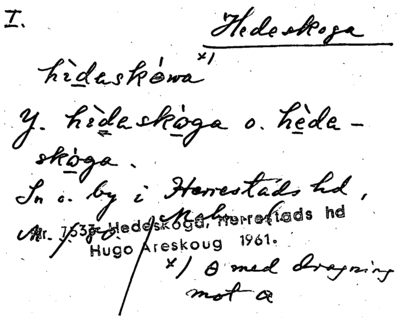 I.
Hedeskoga
hìdaskówa x)
Y. hìdaskòga o. hèda-
skòga.
Sn o. by i Herrestads hd,
M
Nr. 7533 Hedeskoga, Herrestads hd
Hugo Areskoug 1961.
x) ɵ med dragning
mot a